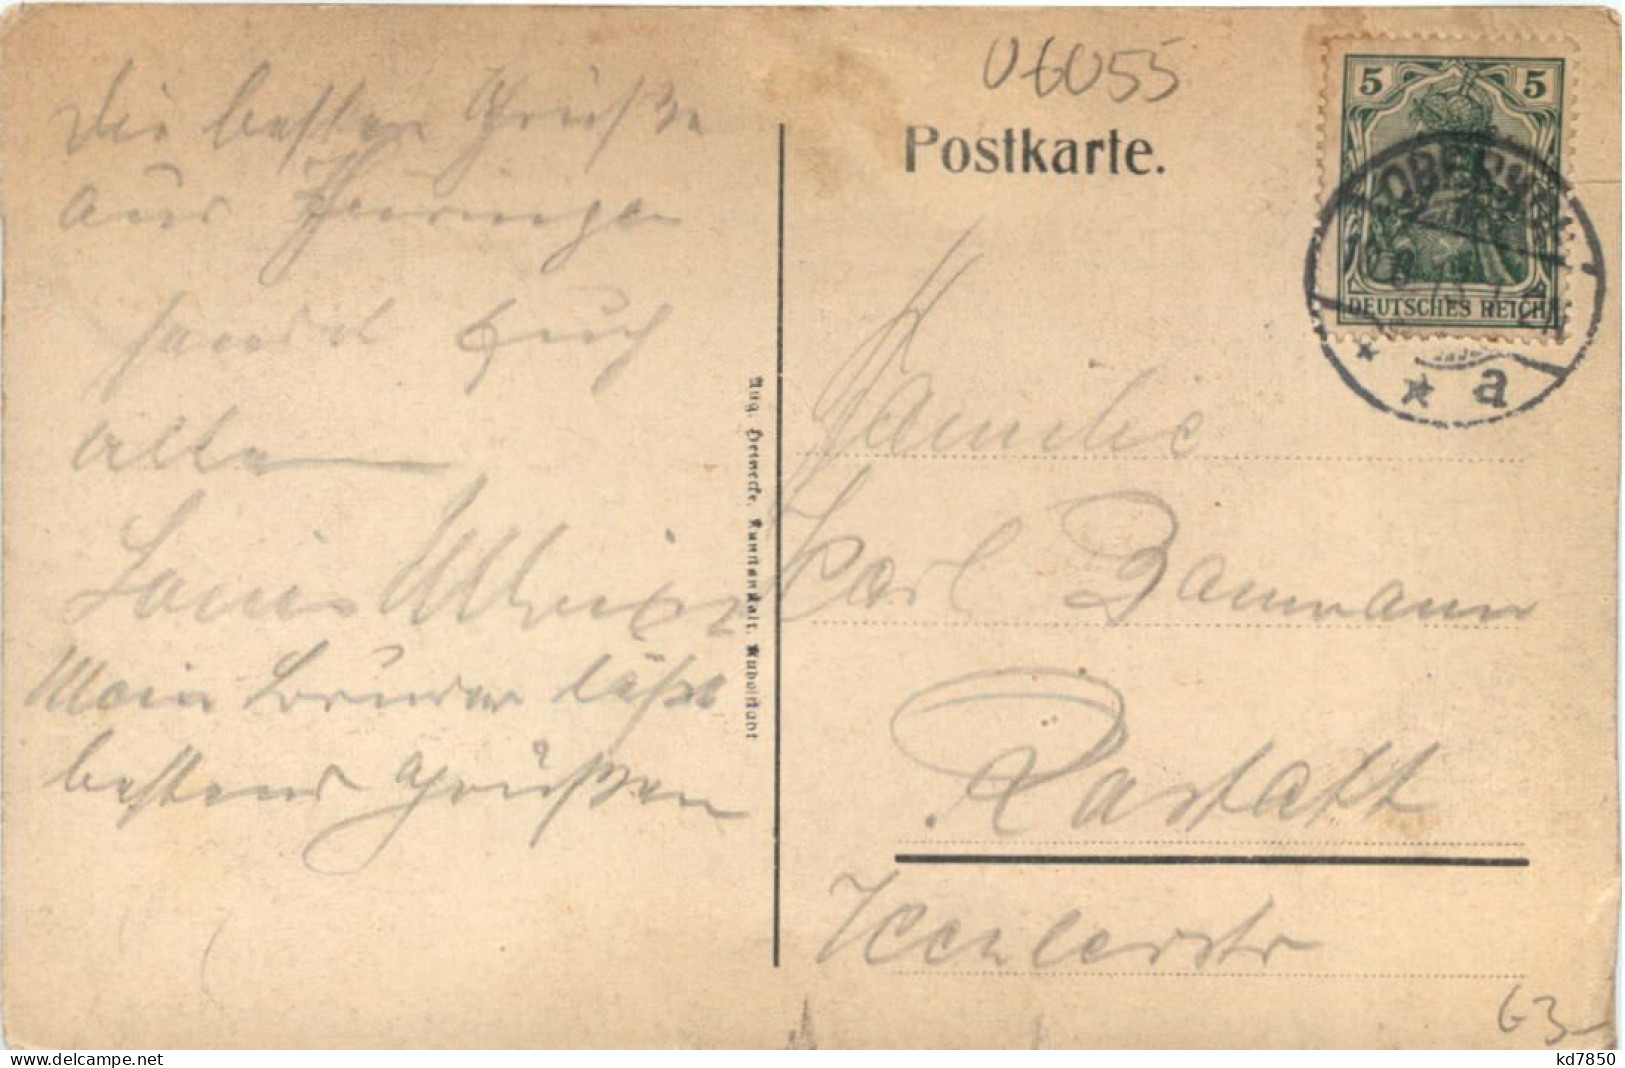 06055
Postkarte.
5 5
DEUTSCHES REICH
a
Die besten Grüße
aus Thüringen
sendet Euch
allen
Mein Bruder läßt
bestens Grüßen
Aug. Heinecke, Kunstanstalt, Rudolstadt
Familie
Karl Baumann
Rastatt
63
kd7850